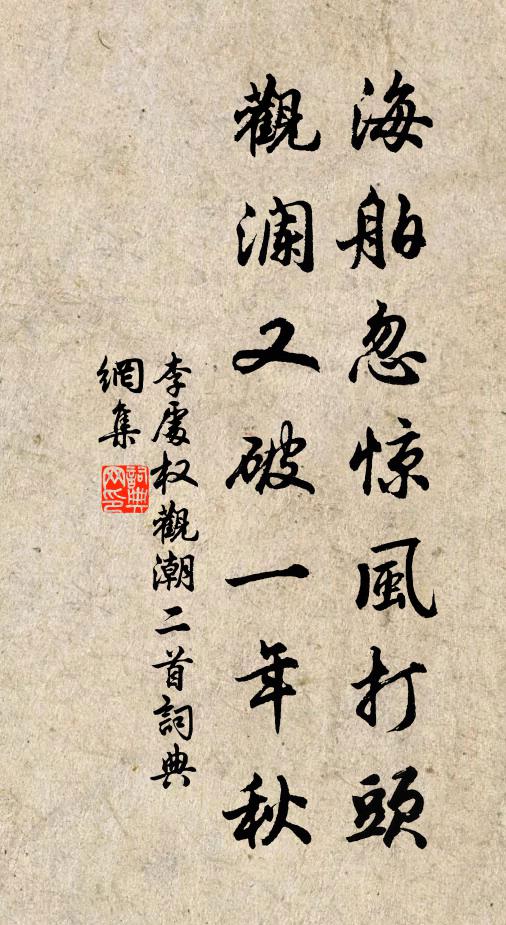 海舶忽惊風打頭
觀瀾又破一年秋
李處权觀潮二首詞典
網集
詞典網印